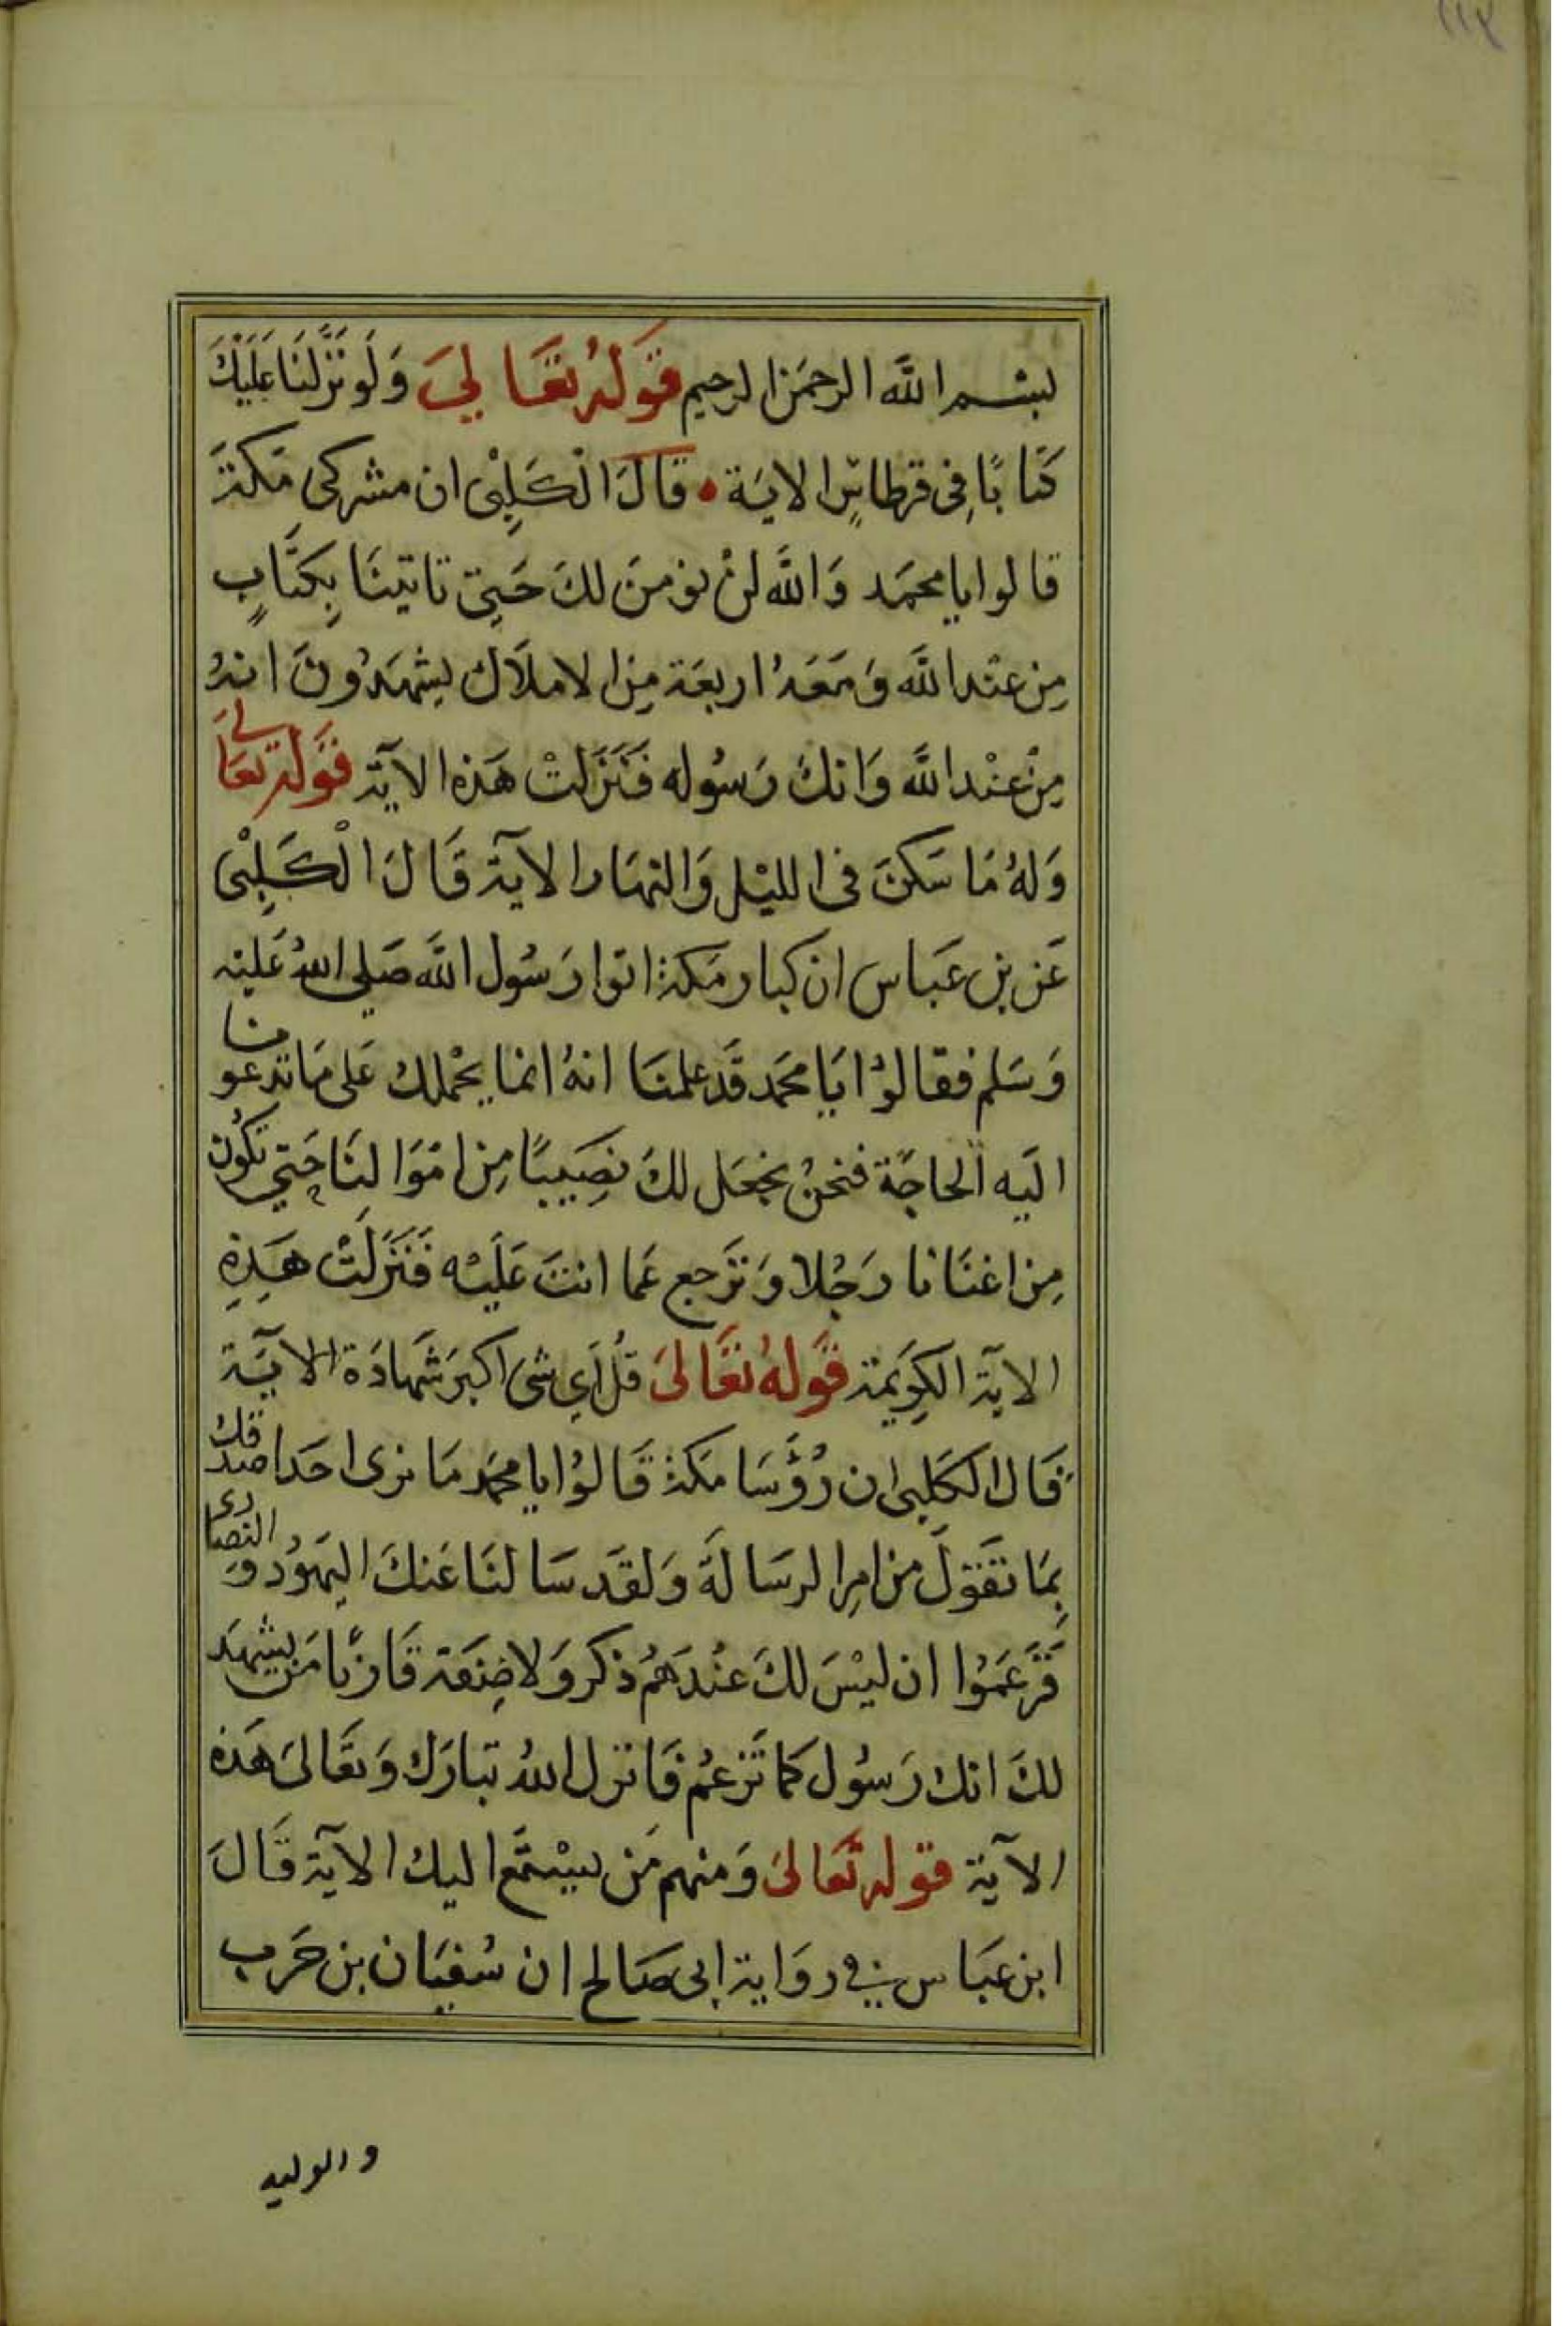 ١١٤
بسم الله الرحمن الرحيم قوله تعالي ولو نزلنا عليك
كتابا في قرطاس الاية قال الكلبي ان مشركي مكة
قالوا يا محمد والله لن نومن لك حتي تاتينا بكتاب
من عند الله ومعه اربعة من الاملاك يشهدون انه
من عند الله وانك رسوله فنزلت هذه الآية قوله تعالي
وله ما سكن في الليل والنهار الآية قال الكلبي
عن بن عباس ان كبار مكة اتوا رسول الله صلي الله عليه
وسلم فقالوا يا محمد قد علمنا انه انما يحملك على ما تدعونا
اليه الحاجة فنحن نجعل لك نصيبا من اموالنا حتي تكون
من اغنانا رجلا وترجع عما انت عليه فنزلت هذه
الاية الكريمة قوله تعالى قل اي شى اكبر شهادة الاية
قال الكلبي ان رؤسا مكة قالوا يا محمد ما نرى احدا صدقك
بما تقول من امر الرسالة ولقد سالنا عنك اليهود والنصارى
فزعموا ان ليس لك عندهم ذكر ولا صنعة فارنا من يشهد
لك انك رسول كما تزعم فانزل الله تبارك وتعالى هذه
الآية قوله تعالى ومنهم من يستمع اليك الآية قال
ابن عباس في رواية ابى صالح ان سفيان بن حرب
والوليد